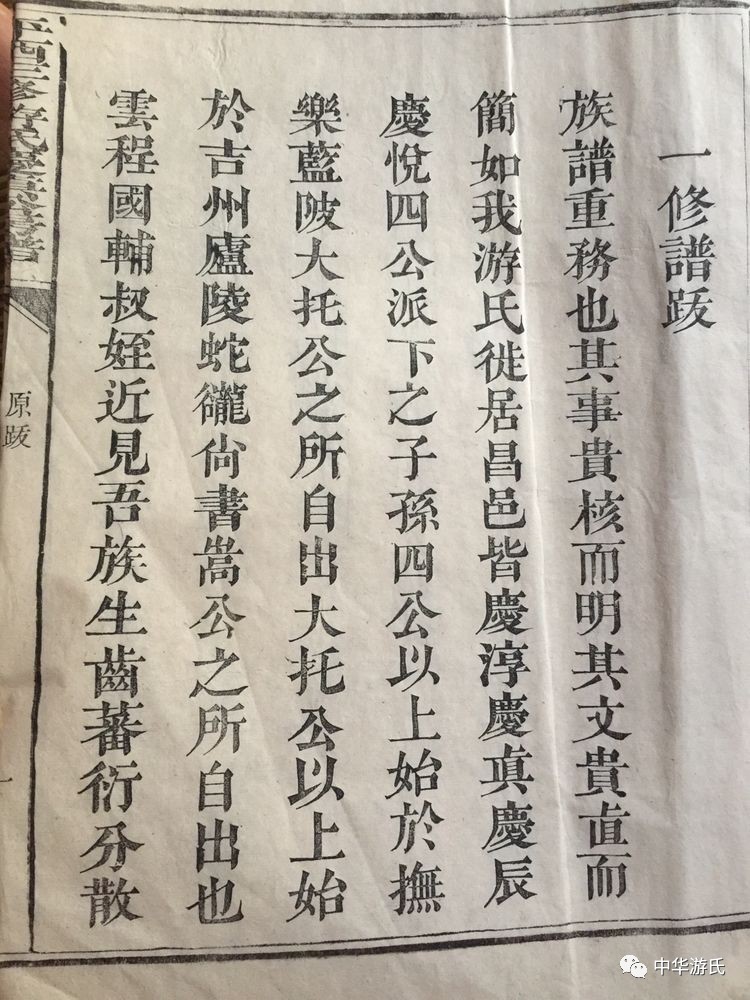 一修譜跋
族譜重務也其事貴核而明其文貴直而
簡如我游氏徙居昌邑皆慶淳慶眞慶辰
慶悅四公派下之子孫四公以上始於撫
樂藍陂大托公之所自出大托公以上始
於吉州廬陵蛇龓尙書嵩公之所自出也
雲程國輔叔姪近見吾族生齒蕃衍分散
原跋
一
中华游氏